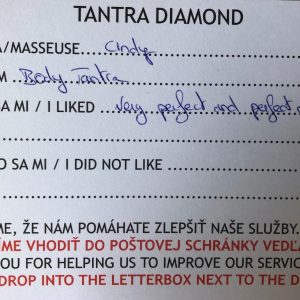 TANTRA DIAMOND
A/MASSEUSE....Cindy
M....Body Tantra
SA MI / I LIKED....Very perfect and perfect
O SA MI / I DID NOT LIKE
ME, ŽE NÁM POMÁHATE ZLEPŠIŤ NAŠE SLUŽBY.
ÍME VHODIŤ DO POŠTOVEJ SCHRÁNKY VEDĽA
OU FOR HELPING US TO IMPROVE OUR SERVIC
DROP INTO THE LETTERBOX NEXT TO THE D